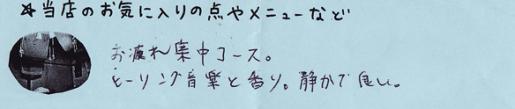 ☆当店のお気に入りの点やメニューなど
お疲れ集中コース。
ヒーリング音楽と香り。静かで良い。